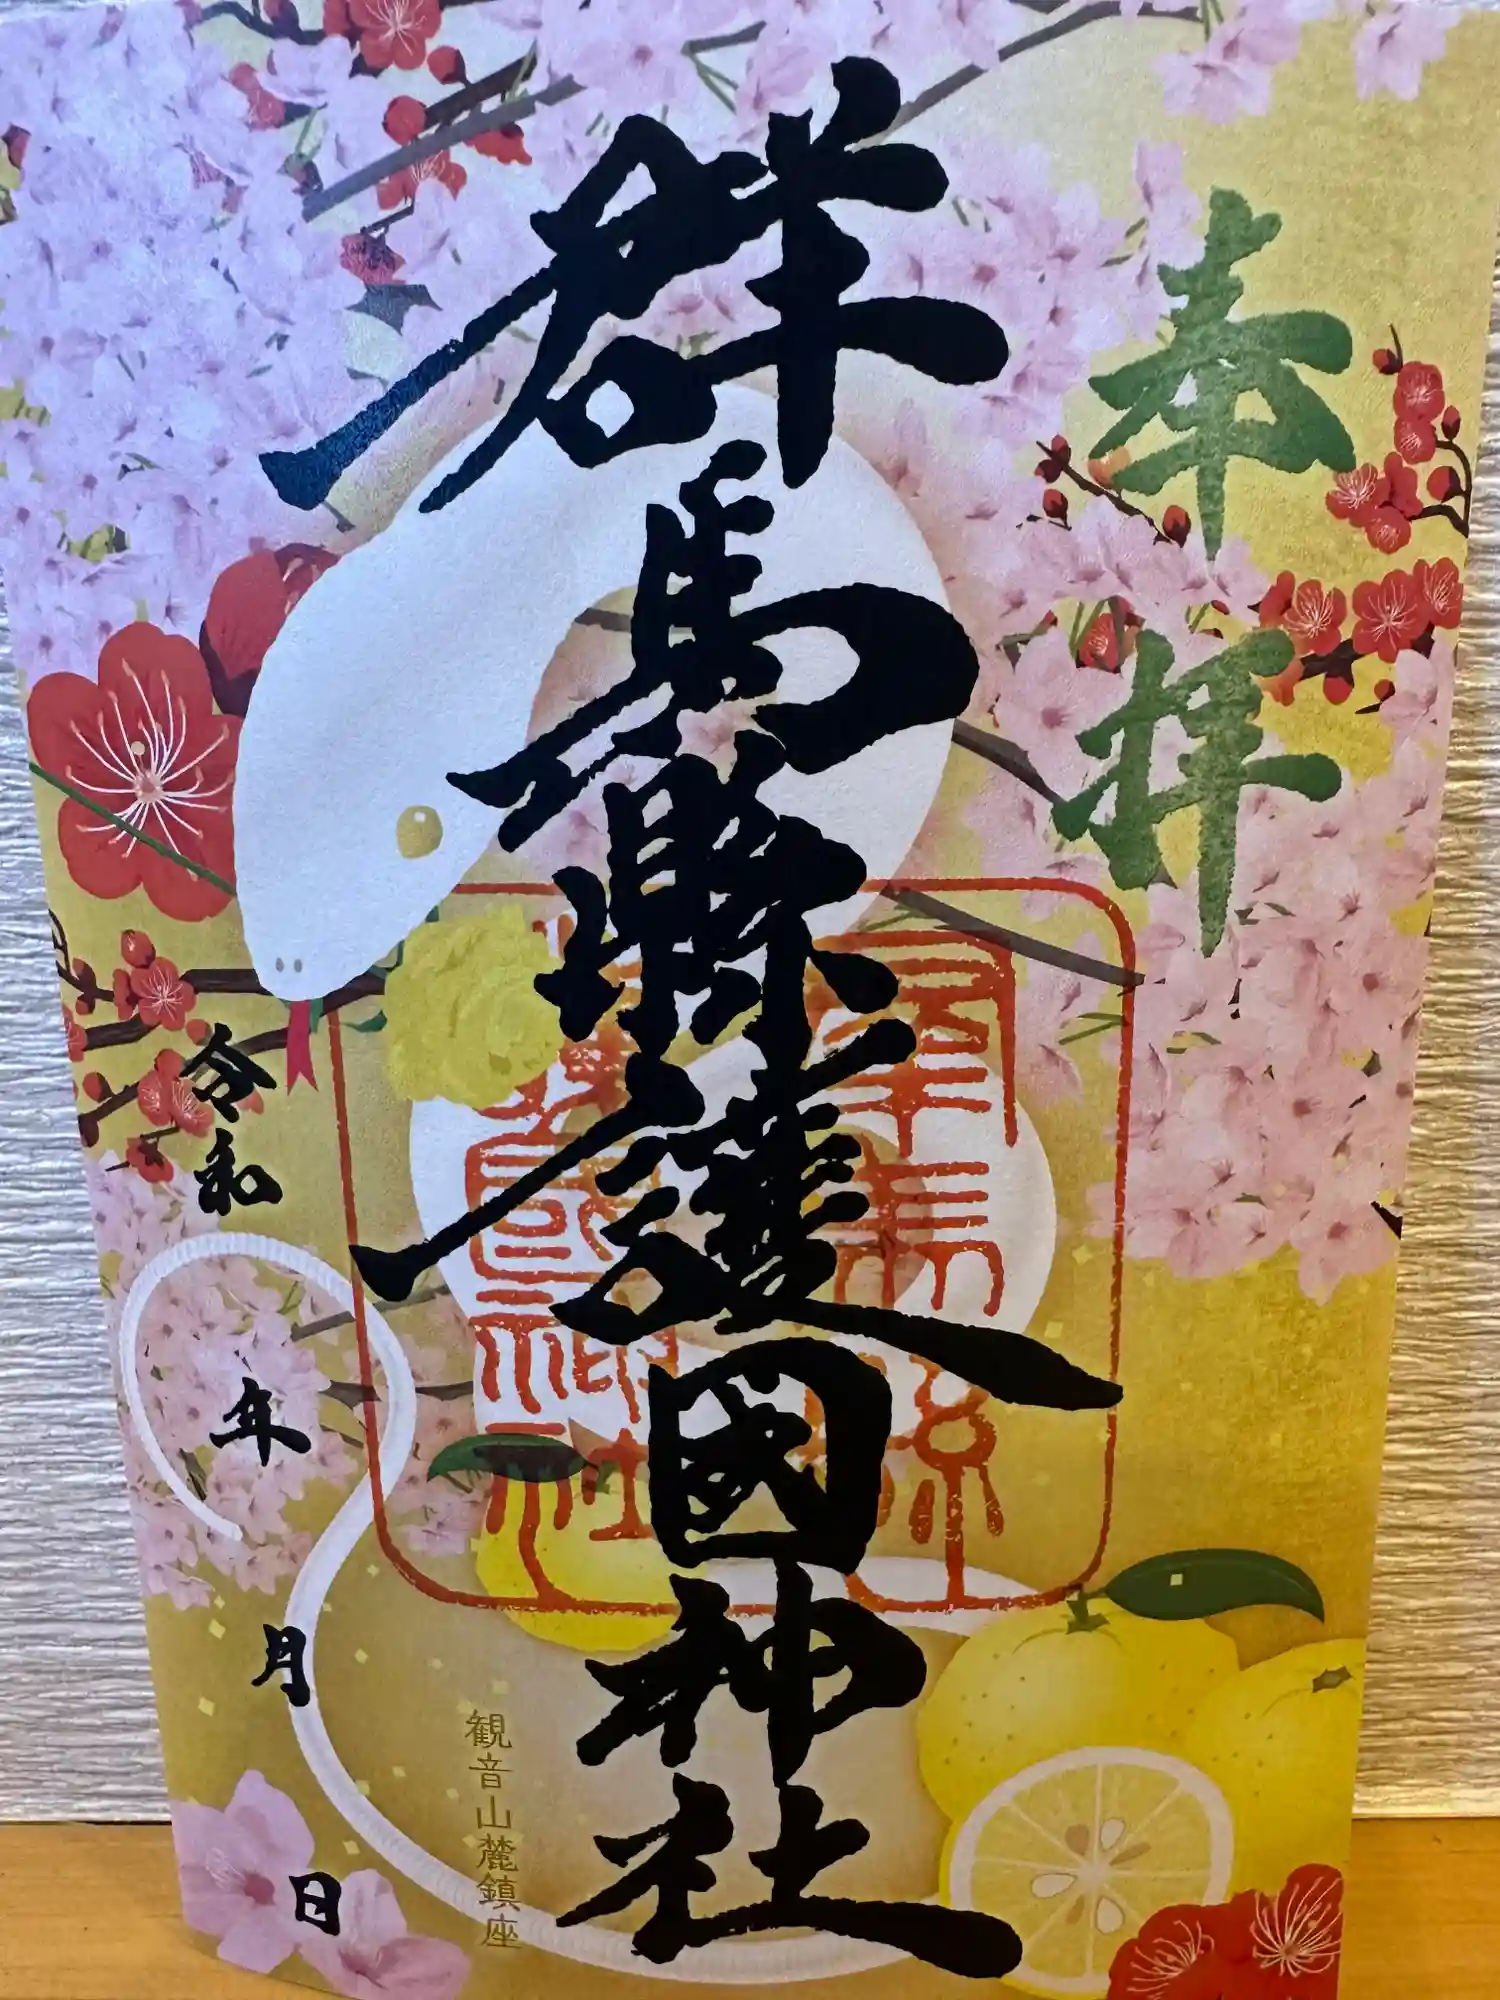 奉拝
群馬縣護國神社
群馬縣
護國神社
観音山麓鎮座
令和 年 月 日